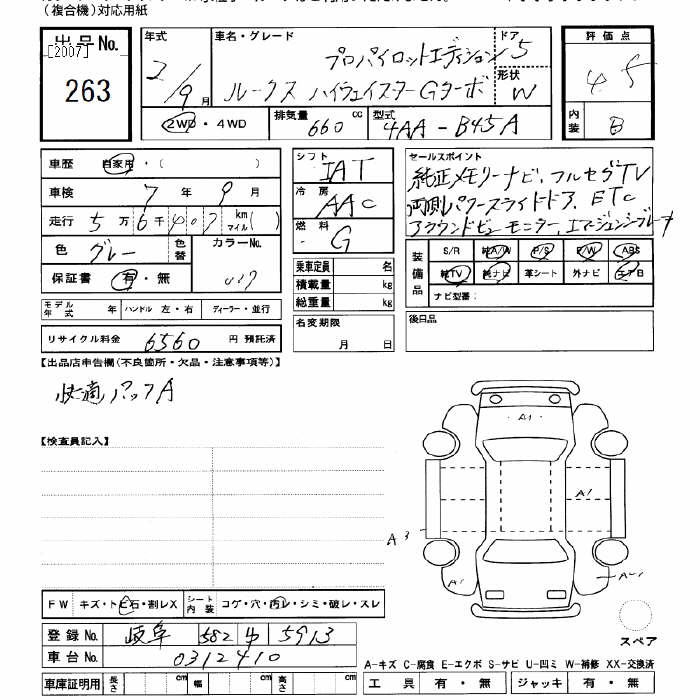 (複合機)対応用紙
出品No.
[2007]
263
年式
2/9月
車名・グレード
プロパイロットエディション
ルークス ハイウェイスターGターボ
ドア
5
形状
W
評価点
4.5
内装
B
2WD・4WD
排気量 660 cc
型式 4AA-B45A
車歴 自家用・( )
車検 7年 9月
走行 5万6千407 km マイル( )
色 グレー
色替
カラーNo.
保証書 有・無
モデル年式 年 ハンドル 左・右 ディーラー・並行
リサイクル料金 6560 円 預託済
シフト IAT
冷房 AAC
燃料 G
乗車定員 名
積載量 kg
総重量 kg
名変期限
月 日
セールスポイント
純正メモリーナビ、フルセグTV
両側パワースライドドア、ETC
アラウンドビューモニター、エマージェンシーブレーキ
装備品
S/R 純A/W P/S P/W ABS
純TV 純ナビ 革シート 外ナビ エアB
ナビ型番:
後日品
【出品店申告欄(不良箇所・欠品・注意事項等)】
快適パックA
【検査員記入】
A1
A1
A3
A1
スペア
FW キズ・トビ石・割レX
シート内装 コゲ・穴・汚レ・シミ・破レ・スレ
登録No. 岐阜 582 5913
車台No. 0312410
車庫証明用 長さ cm 幅 cm 高さ cm
A-キズ C-腐食 E-エクボ S-サビ U-凹ミ W-補修 XX-交換済
工具 有・無 ジャッキ 有・無